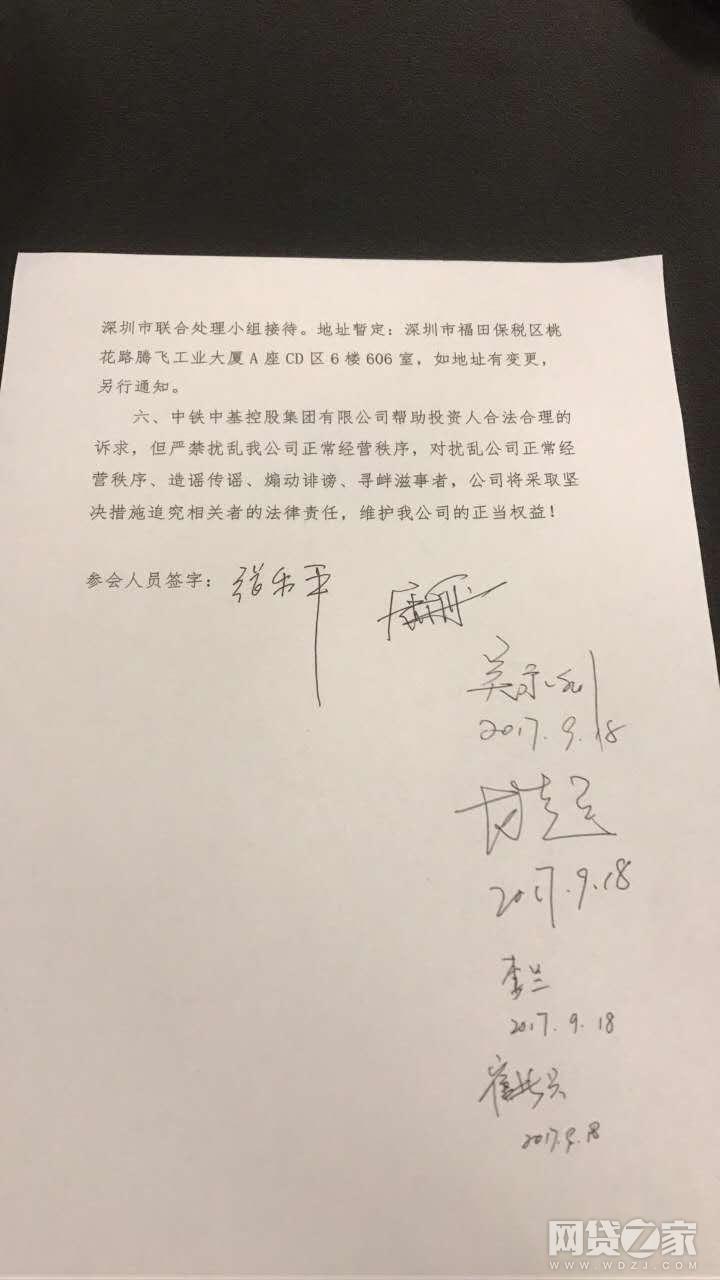 深圳市联合处理小组接待。地址暂定：深圳市福田保税区桃
花路腾飞工业大厦 A 座 CD 区 6 楼 606 室，如地址有变更，
另行通知。
六、中铁中基控股集团有限公司帮助投资人合法合理的
诉求，但严禁扰乱我公司正常经营秩序，对扰乱公司正常经
营秩序、造谣传谣、煽动诽谤、寻衅滋事者，公司将采取坚
决措施追究相关者的法律责任，维护我公司的正当权益！
参会人员签字：
2017.9.18
2017.9.18
李兰
2017.9.18
2017.9.18
网贷之家
WWW.WDZJ.COM